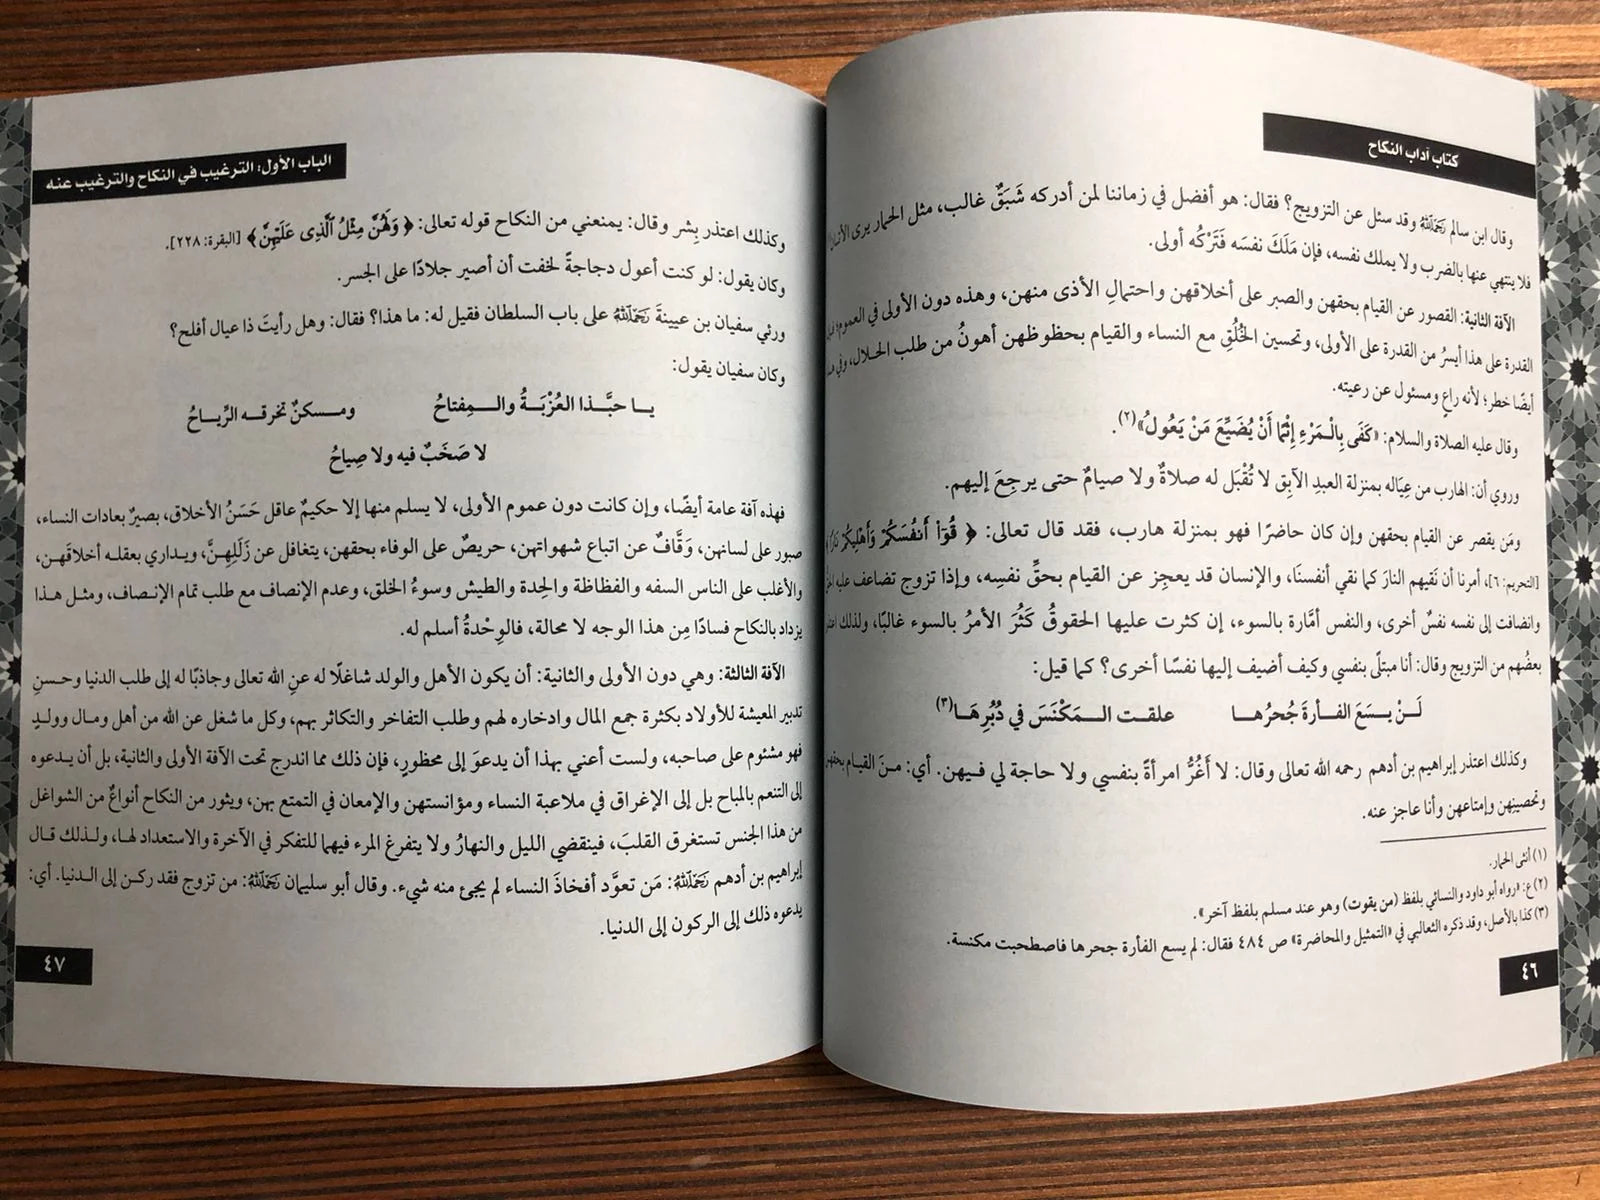 كتاب آداب النكاح
وقال ابن سالم رَحِمَهُ اللَّهُ وقد سئل عن التزويج؟ فقال: هو أفضل في زماننا لمن أدركه شَبَقٌ غالب، مثل الحمار يرى
فلا ينتهي عنها بالضرب ولا يملك نفسه، فإن مَلَكَ نفسَه فَتَرْكُه أولى.
الآفة الثانية: القصور عن القيام بحقهن والصبر على أخلاقهن واحتمالِ الأذى منهن، وهذه دون الأولى في العموم؛
القدرة على هذا أيسرُ من القدرة على الأولى، وتحسين الخُلُقِ مع النساء والقيام بحظوظهن أهونُ من طلب الحلال، وفي
أيضًا خطر؛ لأنه راعٍ ومسئول عن رعيته.
وقال عليه الصلاة والسلام: «كَفَى بِالْمَرْءِ إِثْمًا أَنْ يُضَيِّعَ مَنْ يَعُولُ»(٢).
وروي أن: الهارب من عِيَاله بمنزلة العبدِ الآبِق لا تُقْبَل له صلاةٌ ولا صيامٌ حتى يرجعَ إليهم.
ومَن يقصر عن القيام بحقهن وإن كان حاضرًا فهو بمنزلة هارب، فقد قال تعالى: ﴿ قُوٓاْ أَنفُسَكُمْ وَأَهْلِيكُمْ نَارًا
[التحريم: ٦]، أمرنا أن نَقيهم النارَ كما نقي أنفسنَا، والإنسان قد يعجِز عن القيام بحقِّ نفسِه، وإذا تزوج تضاعف عليه
وانضافت إلى نفسه نفسٌ أخرى، والنفس أمَّارة بالسوء، إن كثرت عليها الحقوقُ كَثُرَ الأمرُ بالسوء غالبًا، ولذلك اعتذر
بعضُهم من التزويج وقال: أنا مبتلًى بنفسي وكيف أضيف إليها نفسًا أخرى؟ كما قيل:
لَنْ يسَعَ الفأرةَ جُحرُها علقت المَكْنَسَ في دُبُرِهَا(٣)
وكذلك اعتذر إبراهيم بن أدهم رحمه الله تعالى وقال: لا أَغُرُّ امرأةً بنفسي ولا حاجة لي فيهن. أي: منَ القيام بحقهن
وتحصينِهن وإمتاعهن وأنا عاجز عنه.
(١) أنثى الحمار.
(٢) ع: «رواه أبو داود والنسائي بلفظ (من يقوت) وهو عند مسلم بلفظ آخر».
(٣) كذا بالأصل، وقد ذكره الثعالبي في «التمثيل والمحاضرة» ص ٤٨٤ فقال: لم يسع الفأرة جحرها فاصطحبت مكنسة.
٤٦
الباب الأول: الترغيب في النكاح والترغيب عنه
وكذلك اعتذر بِشر وقال: يمنعني من النكاح قوله تعالى: ﴿ وَلَهُنَّ مِثْلُ ٱلَّذِى عَلَيْهِنَّ ﴾ [البقرة: ٢٢٨].
وكان يقول: لو كنت أعول دجاجةً لخفت أن أصير جلادًا على الجسر.
ورئي سفيان بن عيينةَ رَحِمَهُ اللَّهُ على باب السلطان فقيل له: ما هذا؟ فقال: وهل رأيتَ ذا عيال أفلح؟
وكان سفيان يقول:
يا حبَّذا العُزْبَةُ والمِفتاحُ ومسكنٌ تخرقه الرِّياحُ
لا صَخَبٌ فيه ولا صِياحُ
فهذه آفة عامة أيضًا، وإن كانت دون عموم الأولى، لا يسلم منها إلا حكيمٌ عاقل حَسَنُ الأخلاق، بصيرٌ بعادات النساء،
صبور على لسانهن، وَقَّافٌ عن اتباع شهواتهن، حريصٌ على الوفاء بحقهن، يتغافل عن زَلَلِهِنَّ، ويداري بعقله أخلاقَهن،
والأغلب على الناس السفه والفظاظة والحِدة والطيش وسوءُ الخلق، وعدم الإنصاف مع طلب تمام الإنصاف، ومثل هذا
يزداد بالنكاح فسادًا مِن هذا الوجه لا محالة، فالوِحْدةُ أسلم له.
الآفة الثالثة: وهي دون الأولى والثانية: أن يكون الأهل والولد شاغلًا له عنِ الله تعالى وجاذبًا له إلى طلب الدنيا وحسنِ
تدبير المعيشة للأولاد بكثرة جمع المال وادخاره لهم وطلب التفاخر والتكاثر بهم، وكل ما شغل عن الله من أهل ومال وولدٍ
فهو مشئوم على صاحبه، ولست أعني بهذا أن يدعوَ إلى محظورٍ، فإن ذلك مما اندرج تحت الآفة الأولى والثانية، بل أن يدعوه
إلى التنعم بالمباح بل إلى الإغراق في ملاعبة النساء ومؤانستهن والإمعان في التمتع بهن، ويثور من النكاح أنواعٌ من الشواغل
من هذا الجنس تستغرق القلبَ، فينقضي الليل والنهارُ ولا يتفرغ المرء فيهما للتفكر في الآخرة والاستعداد لها، ولذلك قال
إبراهيم بن أدهم رَحِمَهُ اللَّهُ: مَن تعوَّد أفخاذَ النساء لم يجئ منه شيء. وقال أبو سليمان رَحِمَهُ اللَّهُ: من تزوج فقد ركن إلى الدنيا. أي:
يدعوه ذلك إلى الركون إلى الدنيا.
٤٧